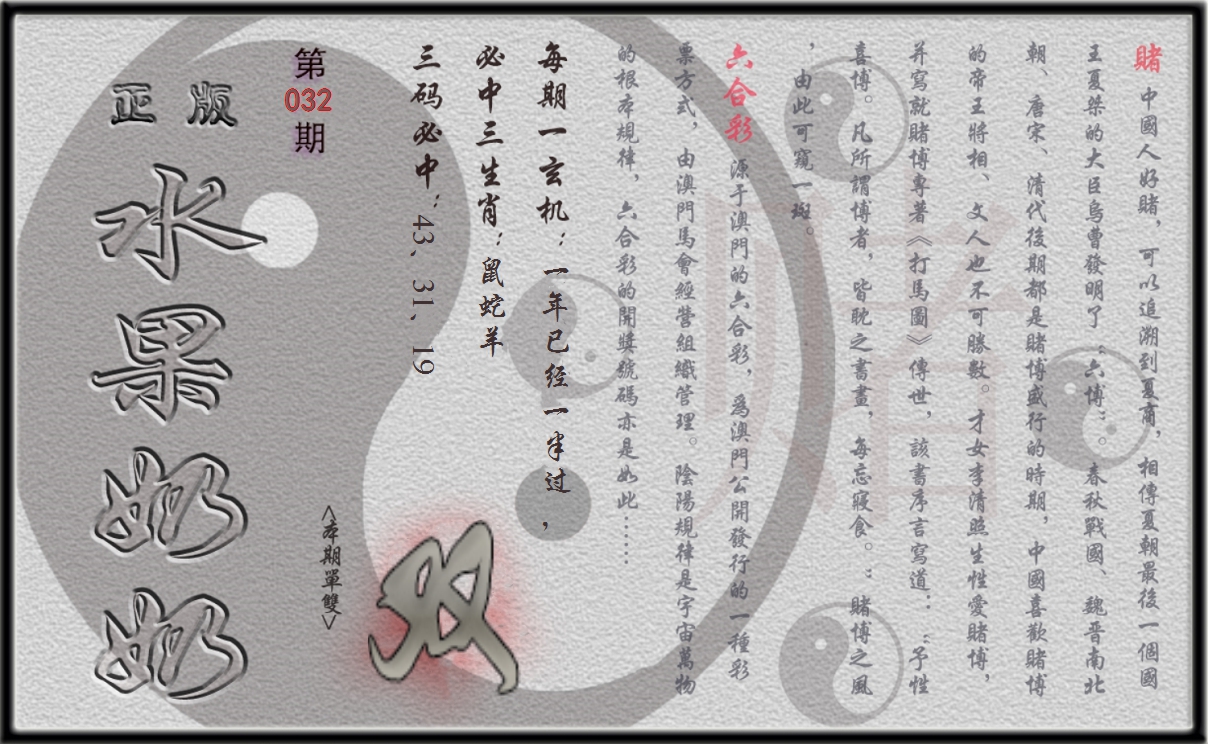 賭 中國人好賭，可以追溯到夏商，相傳夏朝最後一個國
王夏桀的大臣烏曹發明了“六博”。春秋戰國、魏晉南北
朝、唐宋、清代後期都是賭博盛行的時期，中國喜歡賭博
的帝王將相、文人也不可勝數。才女李清照生性愛賭博，
并寫就賭博專著《打馬圖》傳世，該書序言寫道：“予性
喜博。凡所謂博者，皆耽之書畫，每忘寢食。：賭博之風
，由此可窺一斑。
六合彩 源于澳門的六合彩，爲澳門公開發行的一種彩
票方式，由澳門馬會經營組織管理。陰陽規律是宇宙萬物
的根本規律，六合彩的開獎號碼亦是如此……
每期一玄机：一年已经一半过，
必中三生肖：鼠蛇羊
三码必中：43、31、19
<本期單雙>
双
第
032
期
正版
水果奶奶
赌